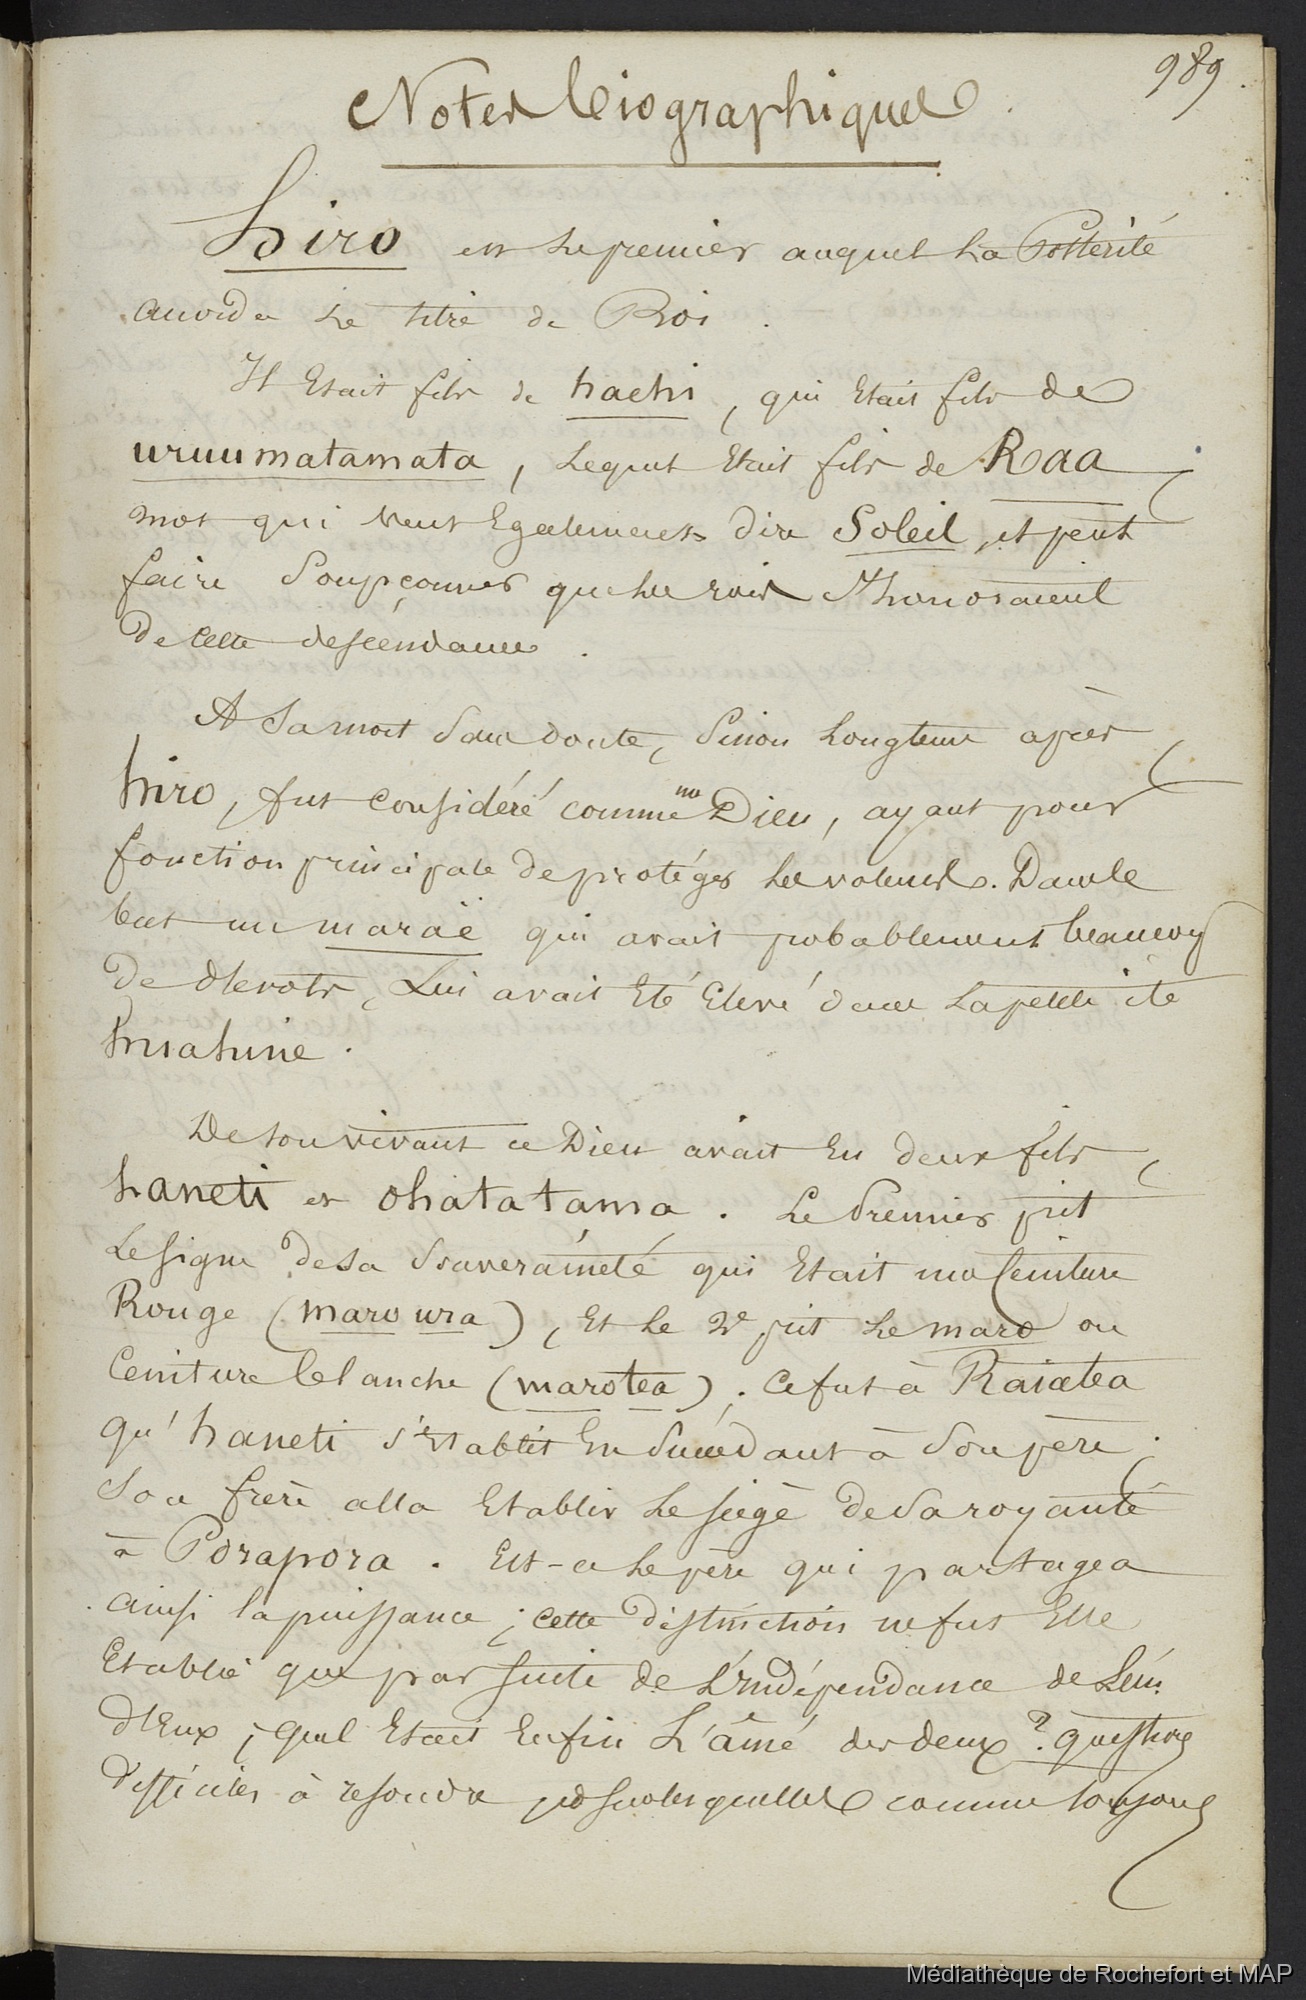 989
Notes biographiques
hiro est le premier auquel la Postérité
accorda le titre de Roi.
Il Etait fils de haehi, qui Etait fils de
uruumatamata, lequel Etait fils de Raa
mot qui veut Egalement dire Soleil, et peut
faire Soupçonner que les rois s'honoraient
de cette descendance.
A sa mort sans doute, Sinon longtems après,
hiro, fut considéré comme un Dieu, ayant pour
fonction principale de protéger les voleurs. Dans le
but un maraë qui avait probablement beaucoup
de devots, Lui avait Eté Elevé dans la petite ile
huahine.
De son vivant ce Dieu avait Eu deux fils,
haneti et ohatatama. Le Premier prit
Le signe de sa Souveraineté qui Etait une Ceinture
Rouge (maro ura), Et le 2e prit le maro ou
Ceinture blanche (marotea); ce fut à Raiatea
qu'haneti s'Etablit En Succédant à Son père;
Son frère alla Etablir le siège de Sa royauté
à Porapora. Est-ce le père qui partagea
ainsi la puissance; cette distinction ne fut Elle
Etablie que par suite de l'indépendance de l'un
d'Eux; quel Etait Enfin L'aîné des deux? questions
difficiles à resoudre et sur lesquelles comme toujours
Médiathèque de Rochefort et MAP